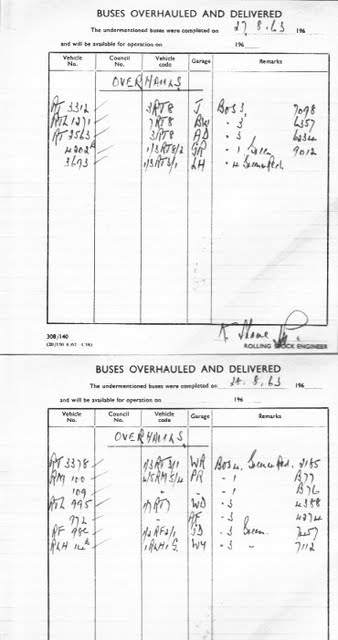 BUSES OVERHAULED AND DELIVERED
The undermentioned buses were completed on 27.8.63 196
and will be available for operation on 196
Vehicle No. Council No. Vehicle code Garage Remarks
OVERHAULS
RT 3312 3RT8 J BOS 3. 7098
RTL 1271 7RT8 BW · 3 6357
RT 2563 3RT8 AD · 3
4202 1/3RT8/2 GR · 1 Green 9012
3693 1/3RT3/1 LH · 4 Green Red.
308/140
ROLLING STOCK ENGINEER
BUSES OVERHAULED AND DELIVERED
The undermentioned buses were completed on 28.8.63 196
and will be available for operation on 196
Vehicle No. Council No. Vehicle code Garage Remarks
OVERHAULS
RT 3378 1/3RT3/1 WR BOS 4. Green Red. 2185
RM 100 4/5RM5/4 PR · 1 A77
109 - - · 1 B76
RTL 995 7RT7 WD · 3 4388
972 - AF · 3 4274
RF 1/2RF2/1 · 3 Green.
RLH 1RLH1 WY · 3 " 7112